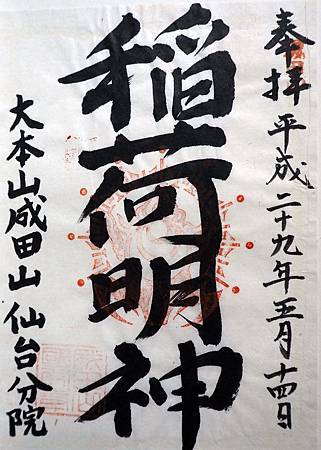 奉拝 平成二十九年五月十四日
稲荷明神
大本山成田山 仙台分院